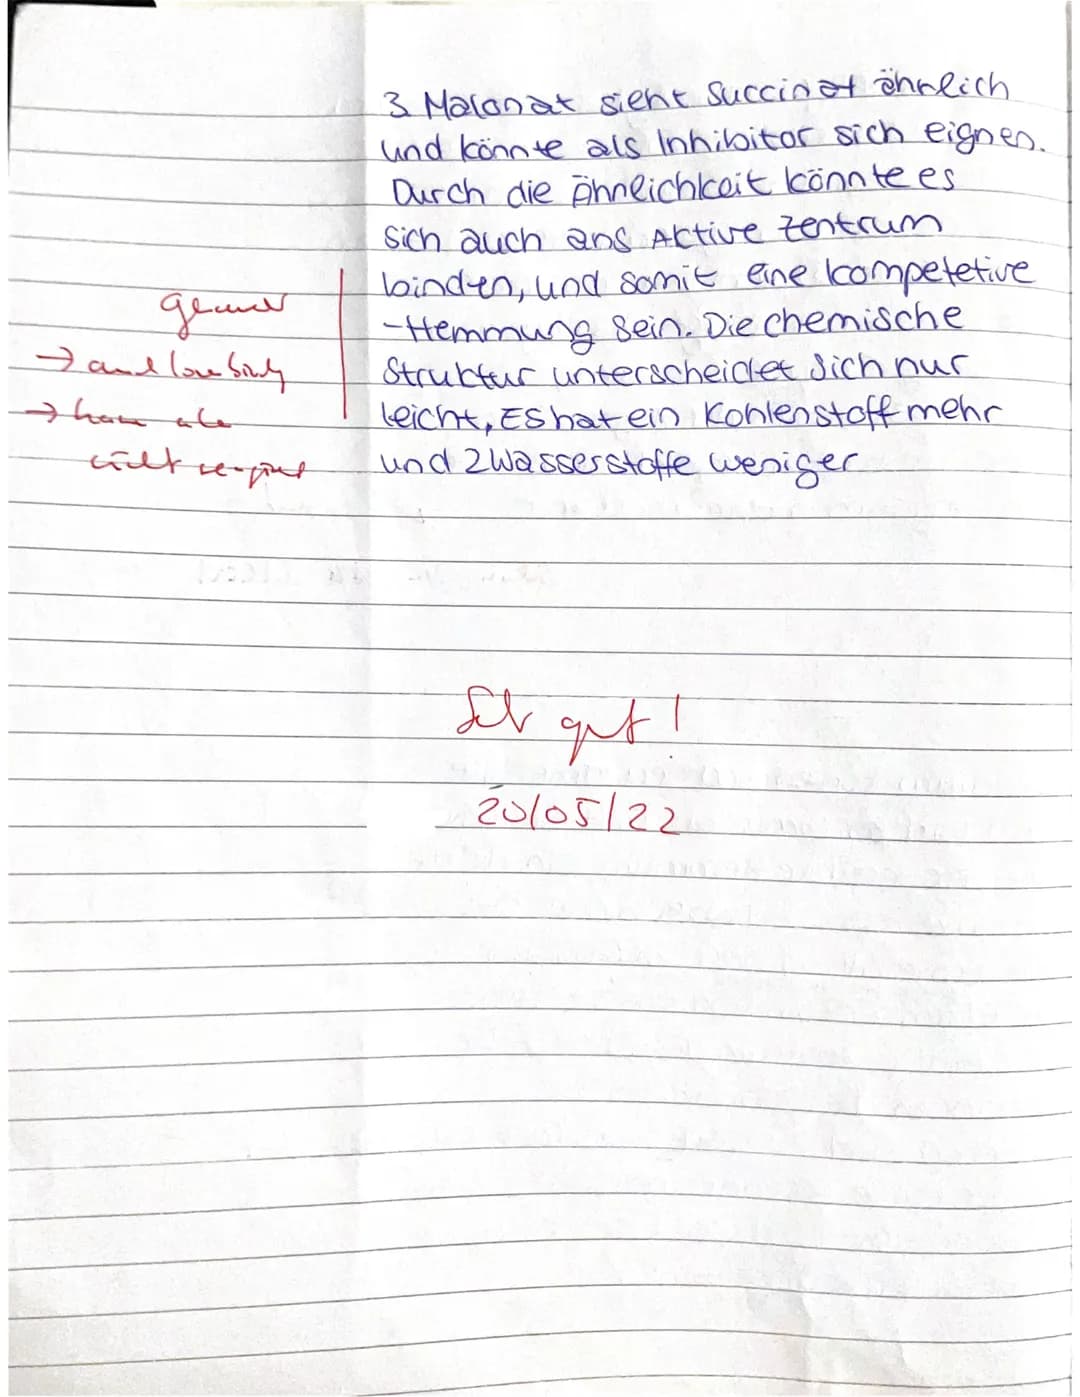 3. Malonat sieht Succinat ähnlich
und könnte als Inhibitor sich eignen.
Durch die Ähnlichkeit könnte es
sich auch ans Aktive Zentrum
binden, und somit eine kompetetive
-Hemmung sein. Die chemische
Struktur unterscheidet sich nur
leicht, Es hat ein Kohlenstoff mehr
und 2 Wasserstoffe weniger
genauer
→
→ kann aber
nicht
Sehr gut!
20/05/22